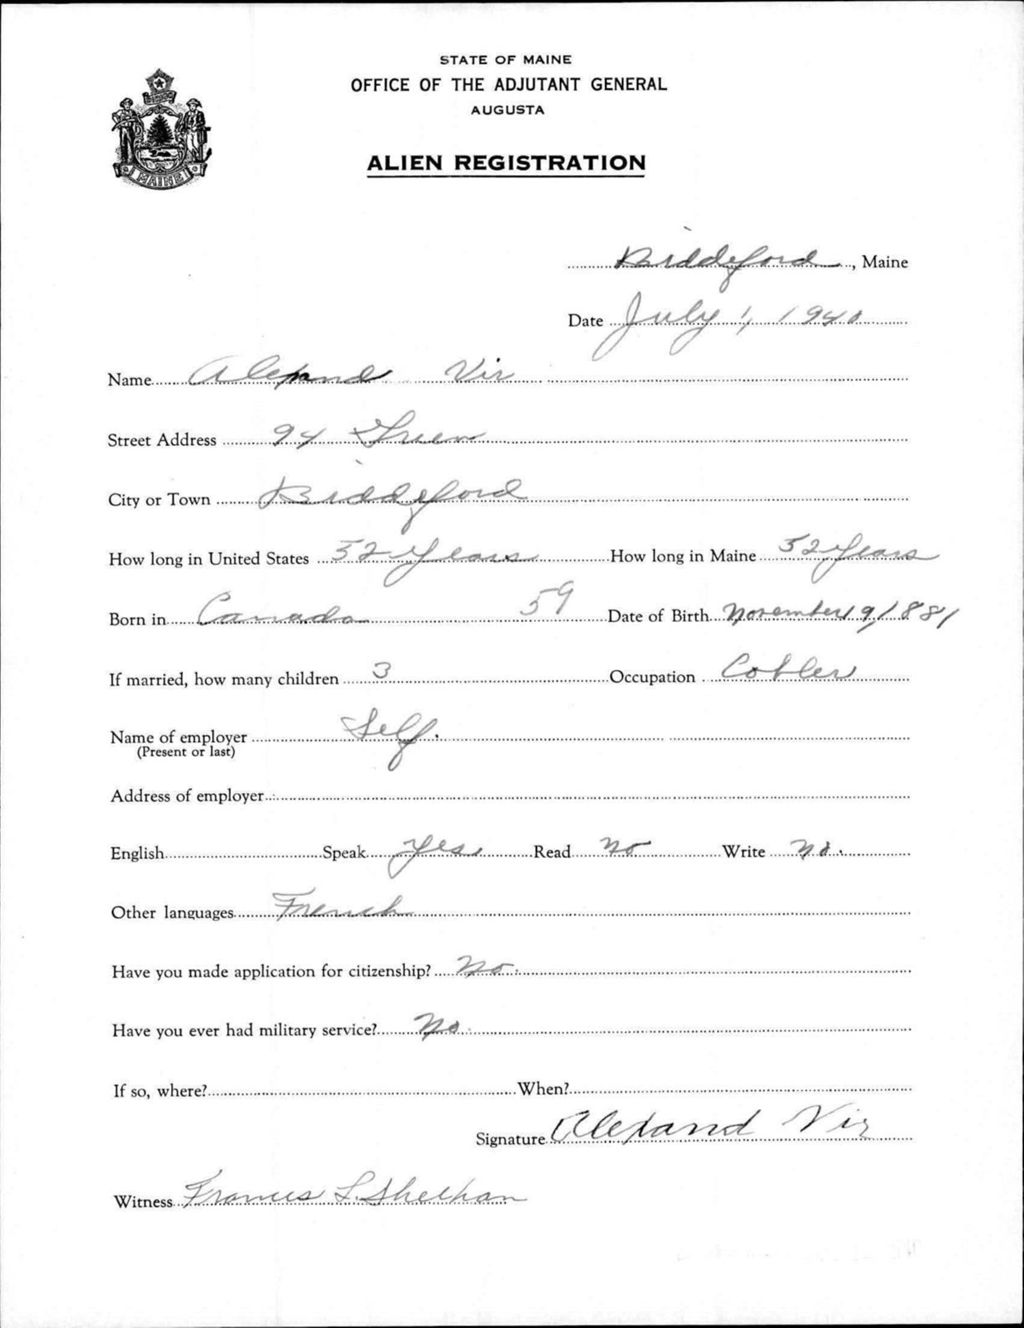 STATE OF MAINE
OFFICE OF THE ADJUTANT GENERAL
AUGUSTA
ALIEN REGISTRATION
MAINE
Biddeford, Maine
Date July 1, 1940
Name Alexand Vir
Street Address 94 Green
City or Town Biddeford
How long in United States 52 years How long in Maine 52 years
Born in Canada 59 Date of Birth November 9, 1881
If married, how many children 3 Occupation Cobler
Name of employer Self.
(Present or last)
Address of employer
English Speak Yes Read No Write No.
Other languages French
Have you made application for citizenship? No.
Have you ever had military service? No.
If so, where? When?
Signature Alexand Vir
Witness Francis L. Shelhan